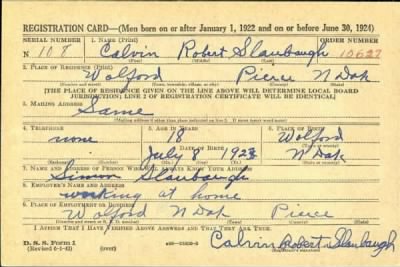 REGISTRATION CARD—(Men born on or after January 1, 1922 and on or before June 30, 1924)
SERIAL NUMBER 1. NAME (Print) ORDER NUMBER
N 108 Calvin Robert Slaubaugh 10627
(First) (Middle) (Last)
2. PLACE OF RESIDENCE (Print)
Wolford Pierce N Dak
[THE PLACE OF RESIDENCE GIVEN ON THE LINE ABOVE WILL DETERMINE LOCAL BOARD
JURISDICTION; LINE 2 OF REGISTRATION CERTIFICATE WILL BE IDENTICAL]
3. MAILING ADDRESS
Same
[Mailing address if other than place indicated on line 2. If same insert word same]
4. TELEPHONE 5. AGE IN YEARS 6. PLACE OF BIRTH
none 18 Wolford
DATE OF BIRTH
July 8 1923 N Dak
7. NAME AND ADDRESS OF PERSON WHO WILL ALWAYS KNOW YOUR ADDRESS
Simon Slaubaugh
8. EMPLOYER'S NAME AND ADDRESS
working at home
9. PLACE OF EMPLOYMENT OR BUSINESS
Wolford N Dak Pierce
I AFFIRM THAT I HAVE VERIFIED ABOVE ANSWERS AND THAT THEY ARE TRUE.
D. S. S. Form 1
(Revised 6-1-42) (over) Calvin Robert Slaubaugh